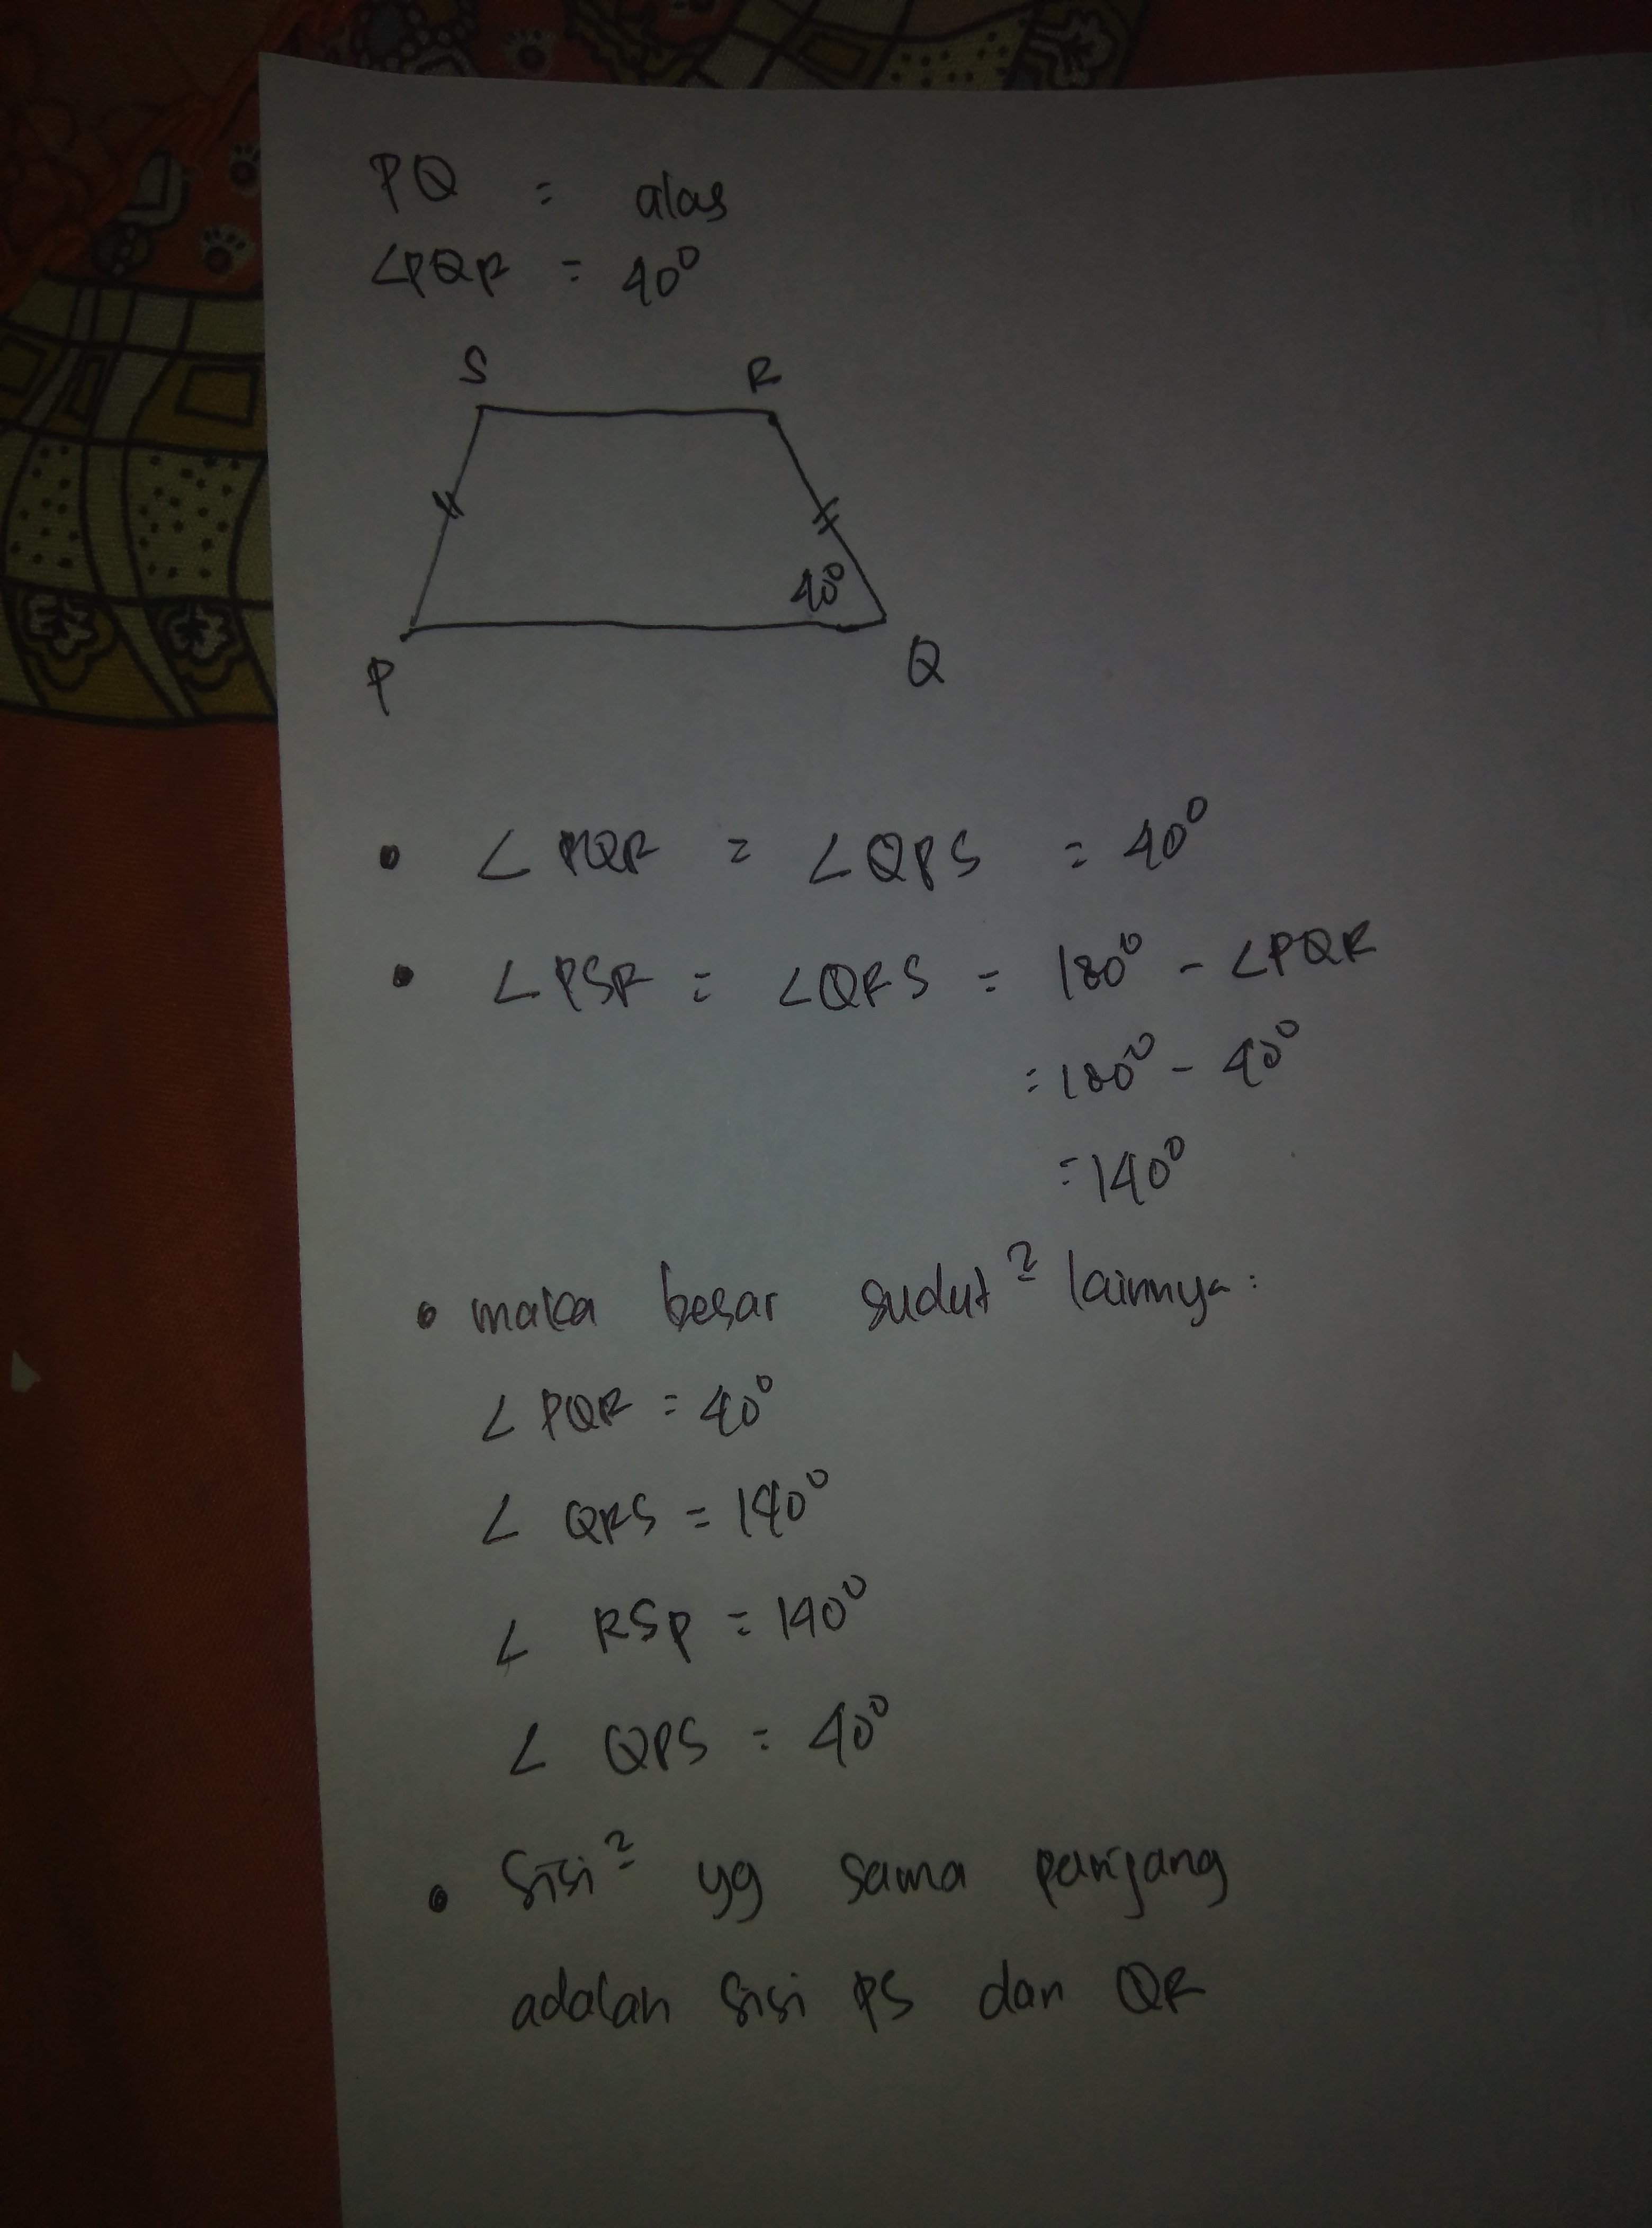 PQ = alas
∠PQR = 40°
S R
40°
P Q
• ∠PQR = ∠QPS = 40°
• ∠PSR = ∠QRS = 180° - ∠PQR
= 180° - 40°
= 140°
• maka besar sudut² lainnya:
∠PQR = 40°
∠QRS = 140°
∠RSP = 140°
∠QPS = 40°
• Sisi² yg sama panjang
adalah sisi PS dan QR